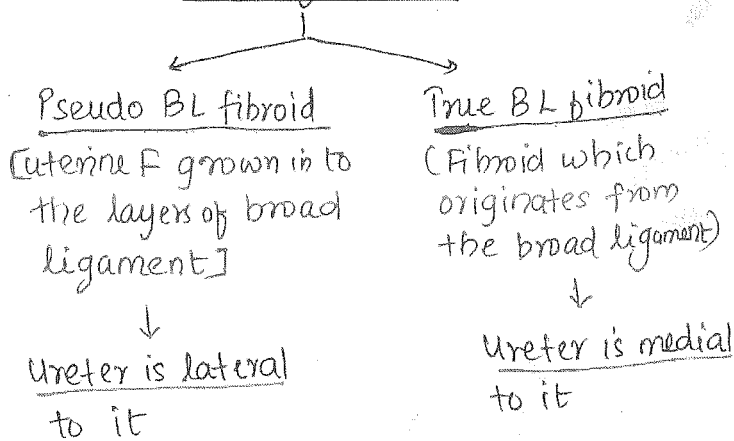 Pseudo BL fibroid
[uterine F grown in to
the layers of broad
ligament]
↓
Ureter is lateral
to it
True BL fibroid
(Fibroid which
originates from
the broad ligament)
↓
Ureter is medial
to it